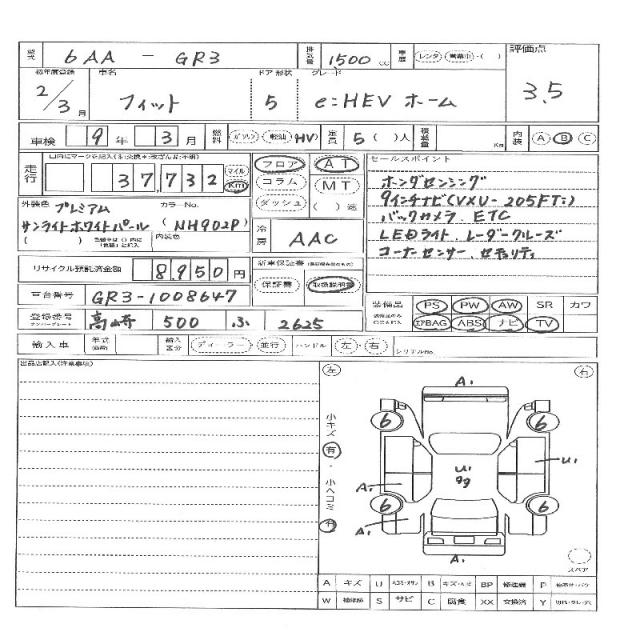 型式 6AA - GR3 排気量 1500 cc 車歴 レンタ・営業中・( ) 評価点
初年度登録 車名 ドア形状 グレード
2/3月 フィット 5 e:HEV ホーム 3.5
車検 9年 3月 燃料 ガソリン・軽油・HV 定員 5 ( )人 積載量 Km 内装 A B C
走行 37,732 マイル Km フロア AT セールスポイント
コラム MT ホンダセンシング
ダッシュ ( )速 9インチナビ(VXU-205FTi)
外装色 プレミアム カラーNo. バックカメラ ETC
サンライトホワイトパール (NH902P) 冷房 AAC LEDライト、レーダークルーズ
内装色 コーナーセンサー、セキュリティ
リサイクル預託済金額 8,950円 新車保証書
保証書 取扱説明書
車台番号 GR3-1008647 装備品 PS PW AW SR カワ
登録番号 ナンバープレート 高崎 500 ふ 2625 AIRBAG ABS ナビ TV
輸入車 年式 輸入区分 ディーラー・並行 ハンドル 左・右 シリアルNo.
出品店記入(注意事項)
左 右
小キズ 有・小ヘコミ 有
A1
6 6
U1 U1
A1
6 6
A1
A1
スペア
A キズ U B BP 修理機 P
W 補修跡 S サビ C 腐食 XX 交換済 Y